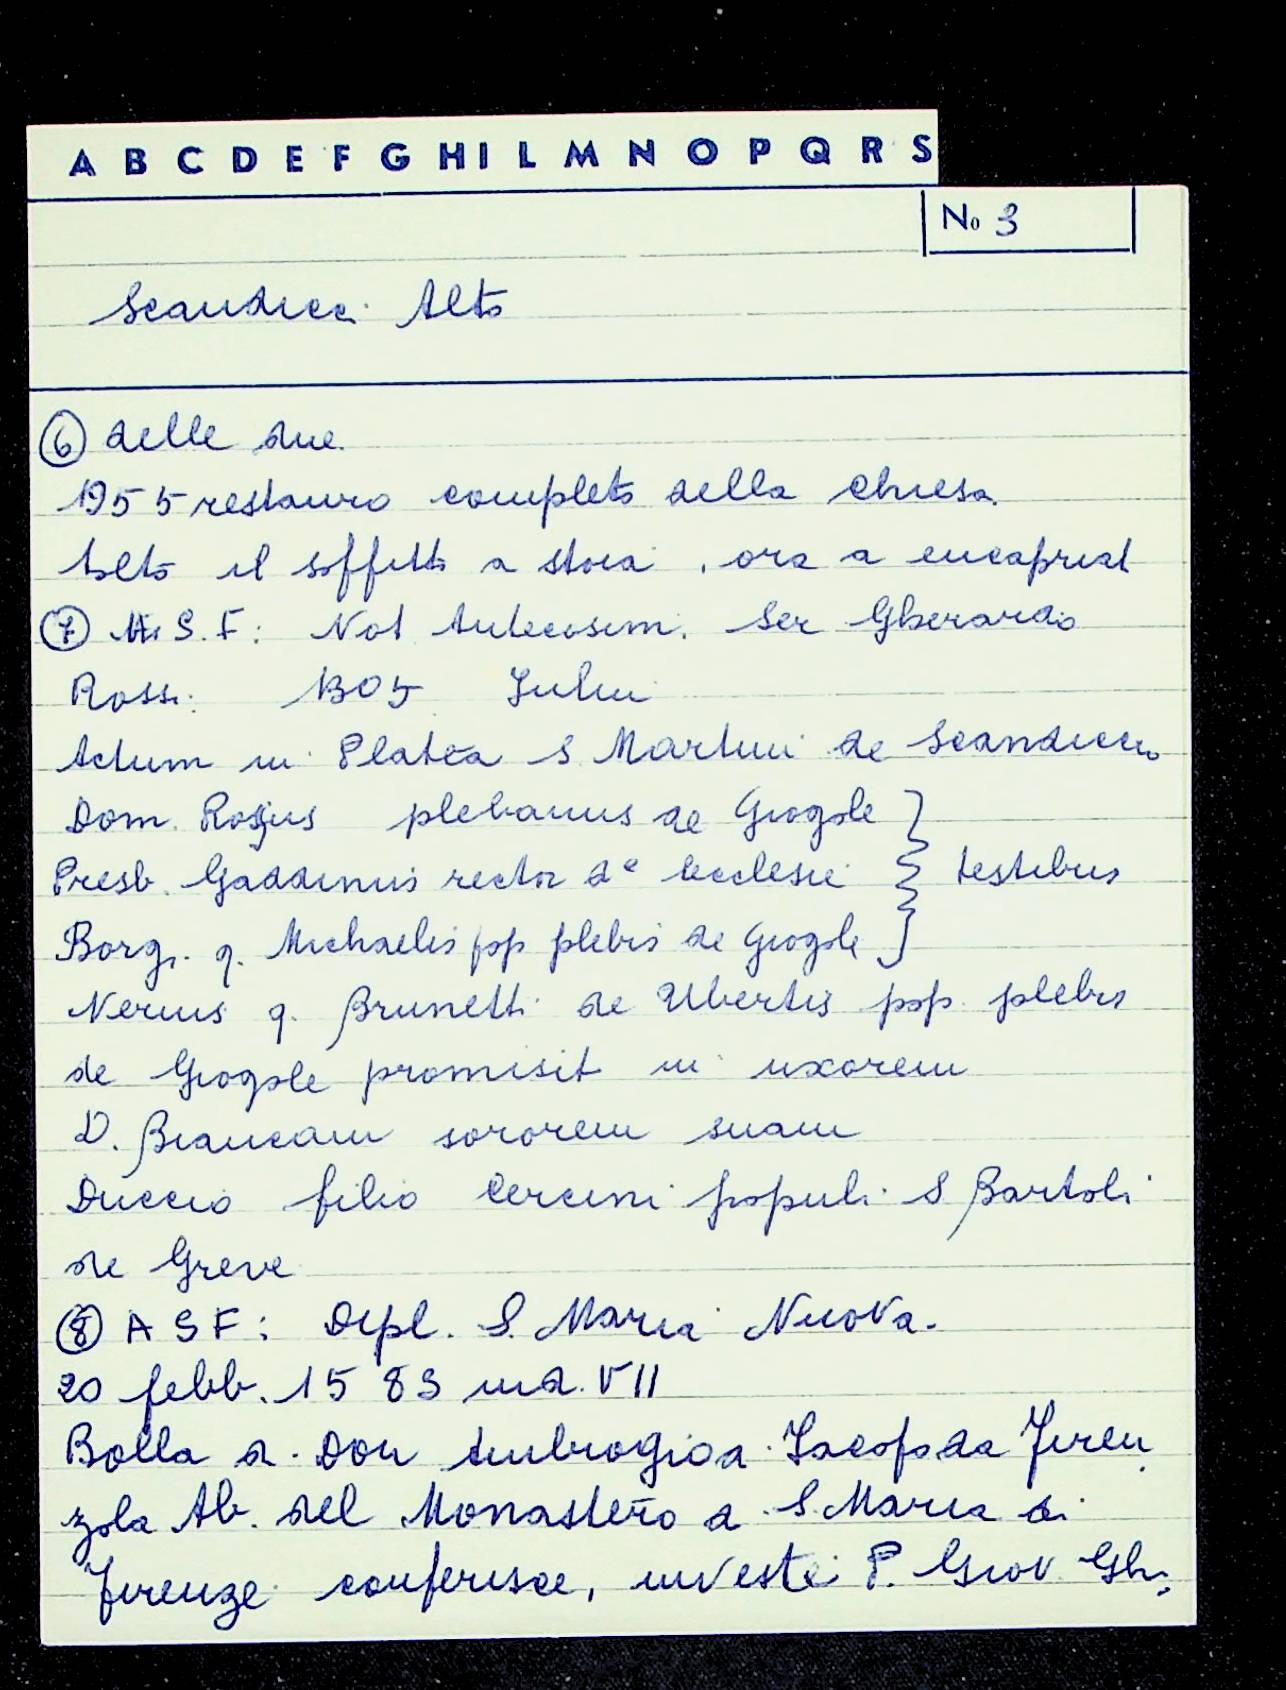 A B C D E F G H I L M N O P Q R S
No 3
Scandicci Alto
6 delle due.
1955 restauro completo della Chiesa.
tolto il soffitto a stoia, ora a incapriat
7 A. S. F: Not Antecosim. Ser Gherardo
Rossi: 1305 Julii
Actum in Platea S Martini de Scandicci
Dom. Rossus plebanus de Giogole
Presb. Gaddinus rector de ecclesie } testibus
Borg. q. Michaelis pop plebis de Giogole
Nerius q. Brunetti de Ubertis pop. plebis
de Giogole promisit in uxorem
D. Biancam sororem suam
Duccio filio Cercini populi S Bartoli
de Greve
8 A S F: Dipl. S. Maria Nuova.
20 febb. 1583 ind. VII
Bolla di Don Ambrogio di Iacopo da Firen
zola Ab. del Monastero di S. Maria di
Firenze conferisce, investe P. Giov. Ghi